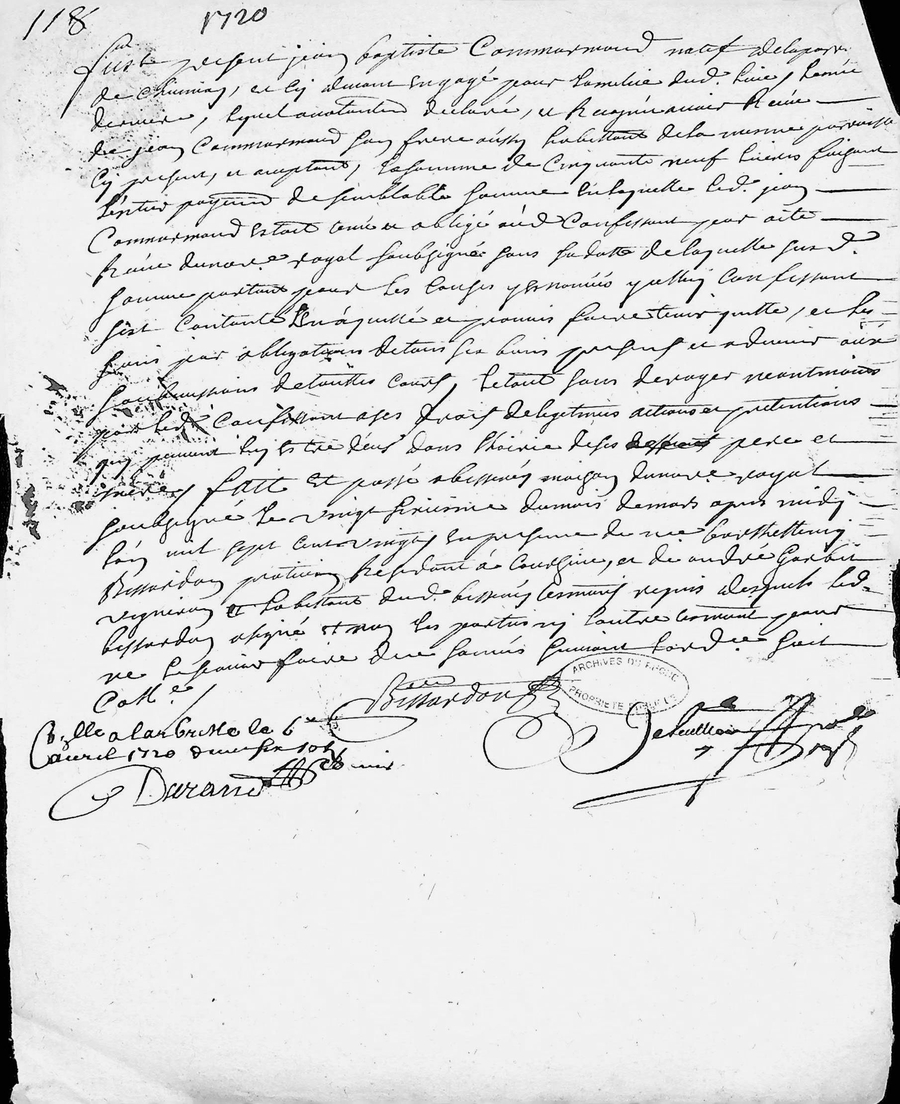 118 1720
fust present jean baptiste Commarmond natif de la parr.
de chuinay, et cy devant engagé pour la milice dud. lieu, lannée
derniere, lequel a declaré, et Recognu avoir Receu
de jean Commarmond son frere aussy habittant de la mesme parroisse
cy present, et aceptant, la somme de cinquante neuf livres faisant
lentier payement de semblable somme en laquelle led. jean
Commarmond estoit tenu et obligé aud. Confessant par acte
Receu du nore. royal soubsigné sous sa datte de laquelle susd.
somme partant pour les causes y enoncés yceluy confessant
sest contanté en a quitté et promis faire tenir quitte, et les
par obligations de tous ses biens presens et advenir aux
soubmissions de touttes cours, le tout sans deroger neantmoins
par led. Confessant a ses droits de legitimes actions et pretentions
qui peuvent luy estre deus dans lhoirie de ses pere et
mere, fait et passé a bessenay maison du nore. royal
soubsigné le vingt sixiesme du mois de mars apres midy
lan mil sept cent vingt, en presence de me barthellemy
Bissardon praticien Residant a Courzieu, et de andré Garbit
vigneron et habittant dud. bessenay tesmoins requis desquels led.
bissardon a signé et non les parties ny lautre tesmoint pour
ne le scavoir faire de ce sommés suivant lord.ce soit
Colle.
Bissardon
ARCHIVES DU RHONE
PROPRIETE PUBLIQUE
Con.lle a larbresle le 6e
avril 1720
Durand